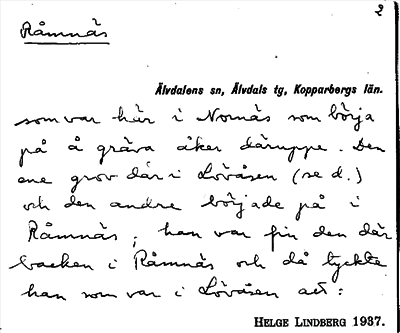 2
Råmnäs
Älvdalens sn, Älvdals tg, Kopparbergs län.
som var här i Nornäs som börja
på å gräva åker däruppe. Den
ene grov där i Lövåsen (se d.)
och den andre började på i
Råmnäs; han var från den där
backen i Råmnäs och då tyckte
han som var i Lövåsen att:
HELGE LINDBERG 1937.